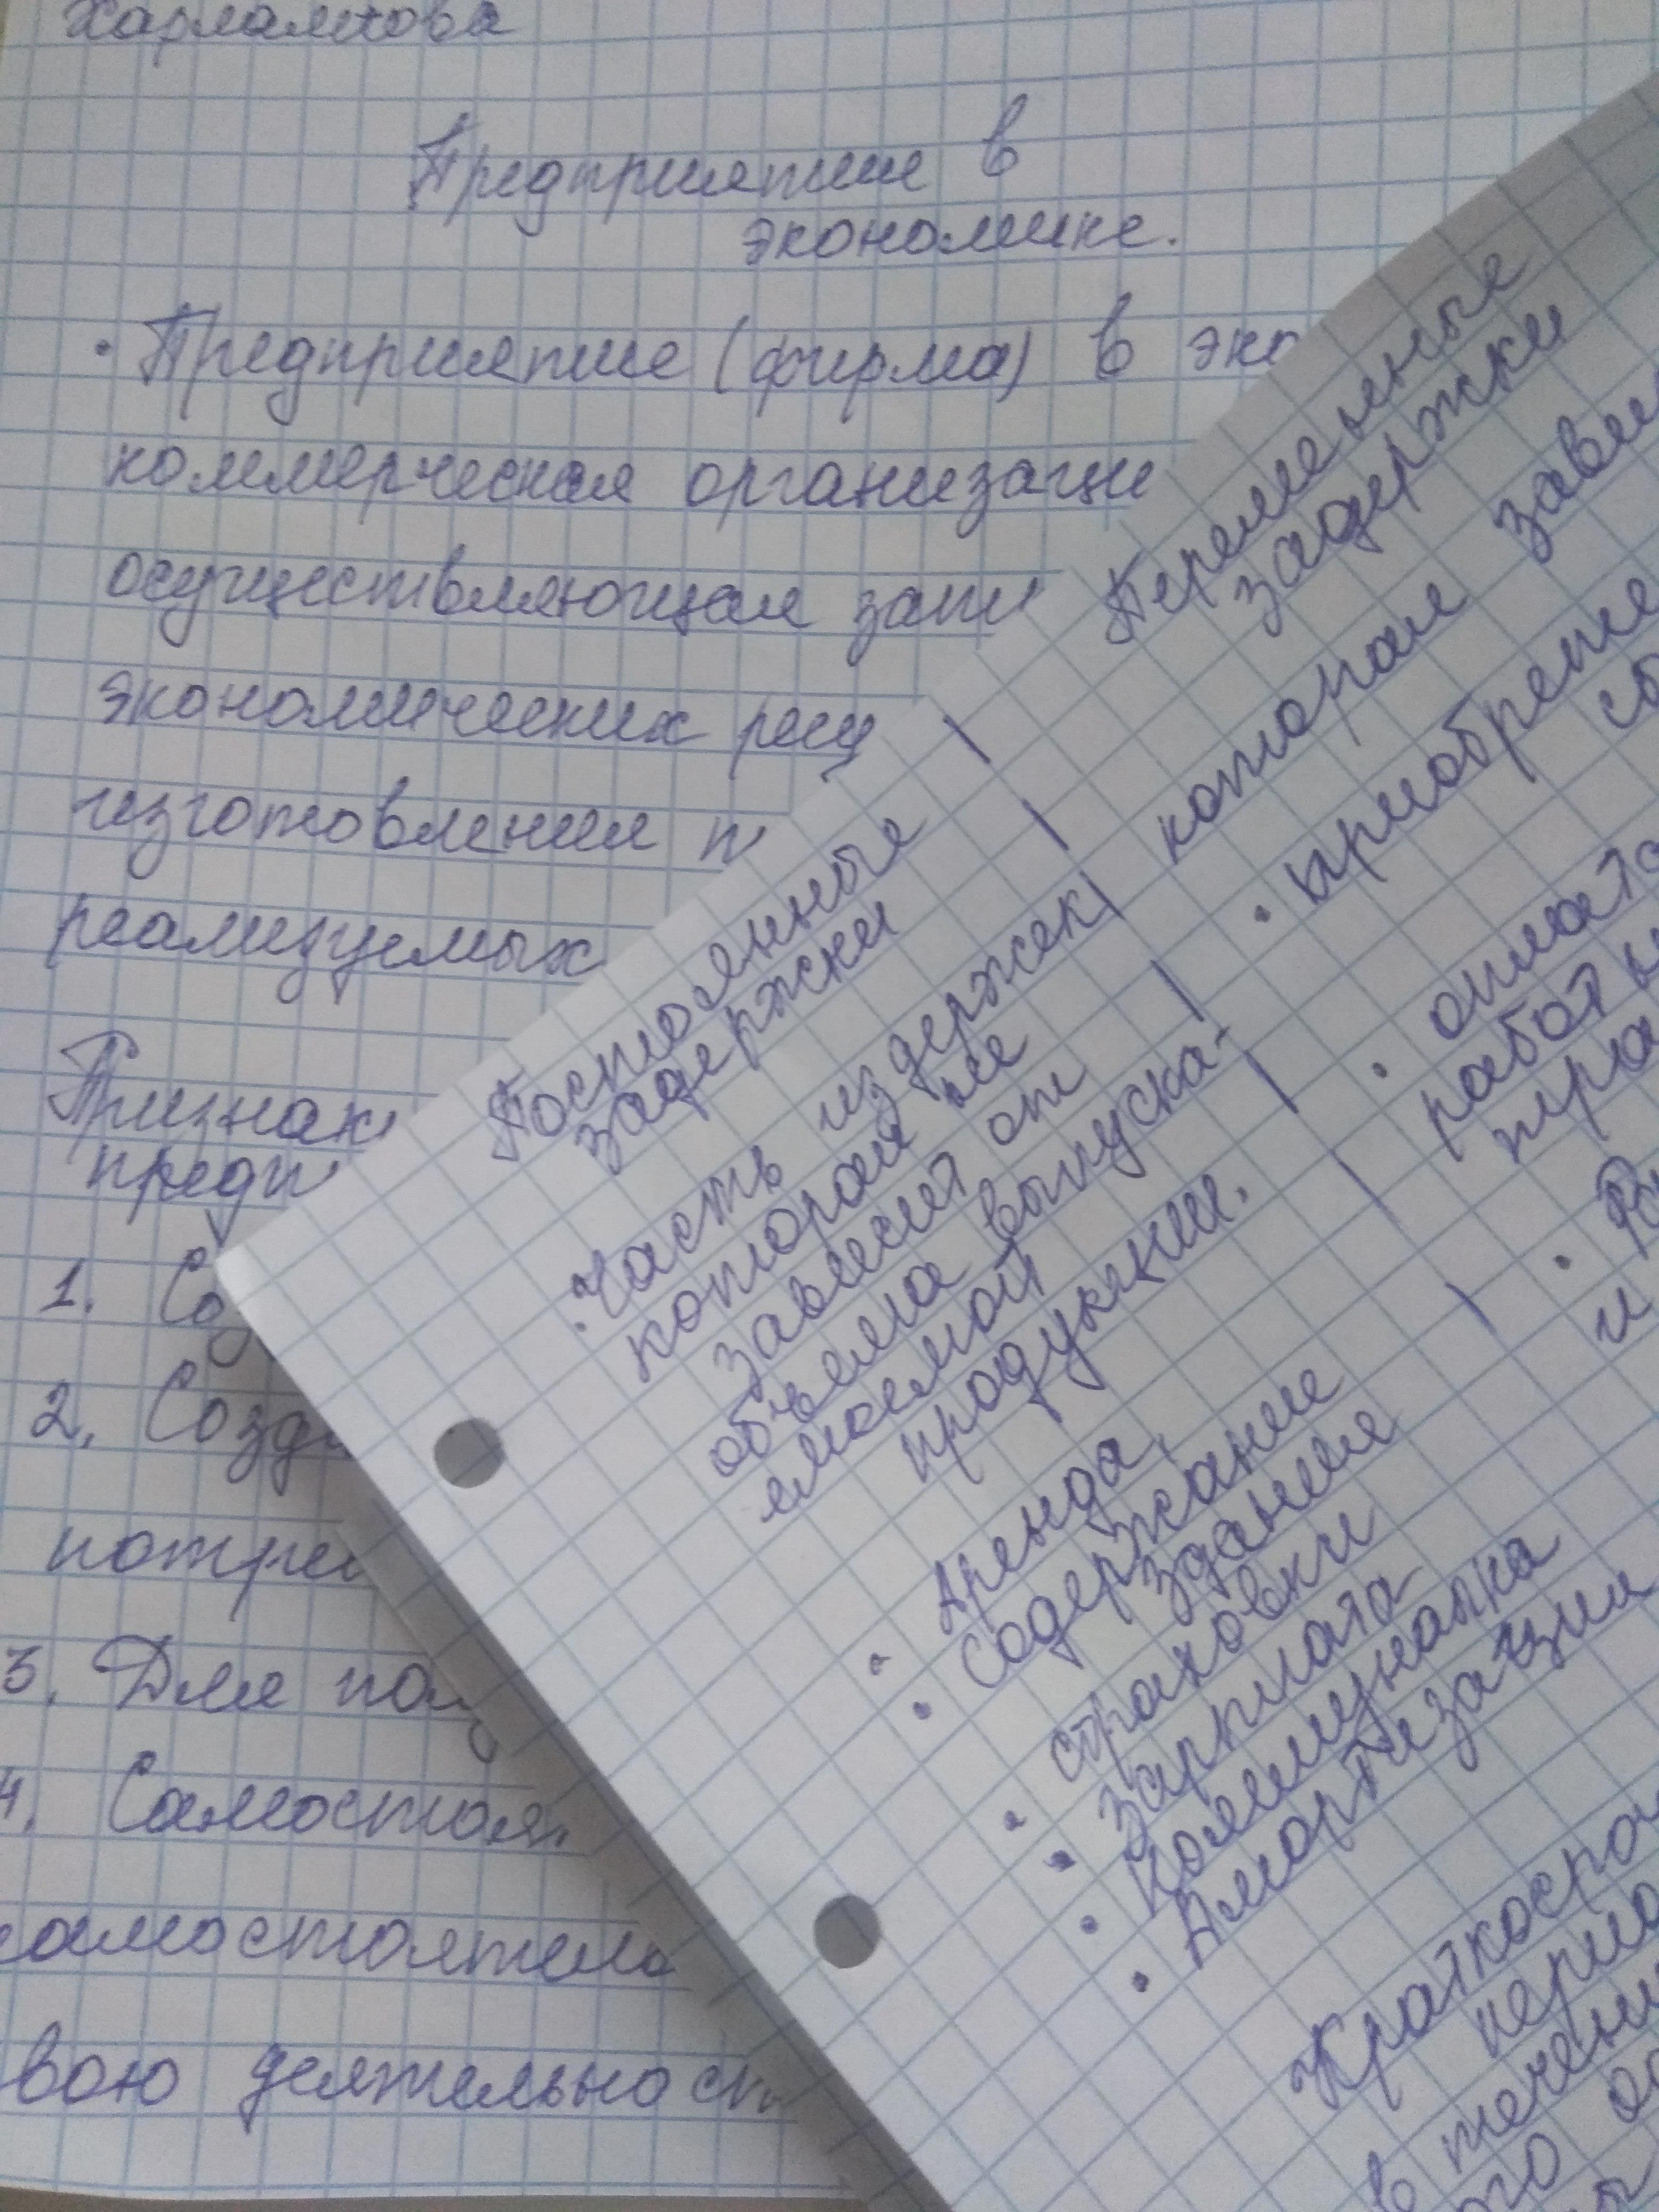 Харламова
Предприятие в
экономике.
• Предприятие (фирма) в эко
коммерческая организаци
осуществляющая затр
экономических рес
изготовления п
реализуемых
Признак
предп
1. Соз
2. Созда
потреб
3. Для полу
4. Самостоя
самостоятельно
свою деятельност
Постоянные
задержки
• Часть издержек
которая не
зависит от
объема выпуска-
емой
продукции.
• Аренда,
• Содержание
здания
• страховки
• Зарплата
• Коммуналка
• Амортизации
Переменные
задержки
которая зави
• приобретение
сы
• оплата
работ
и
Краткосроч
перио
в течени